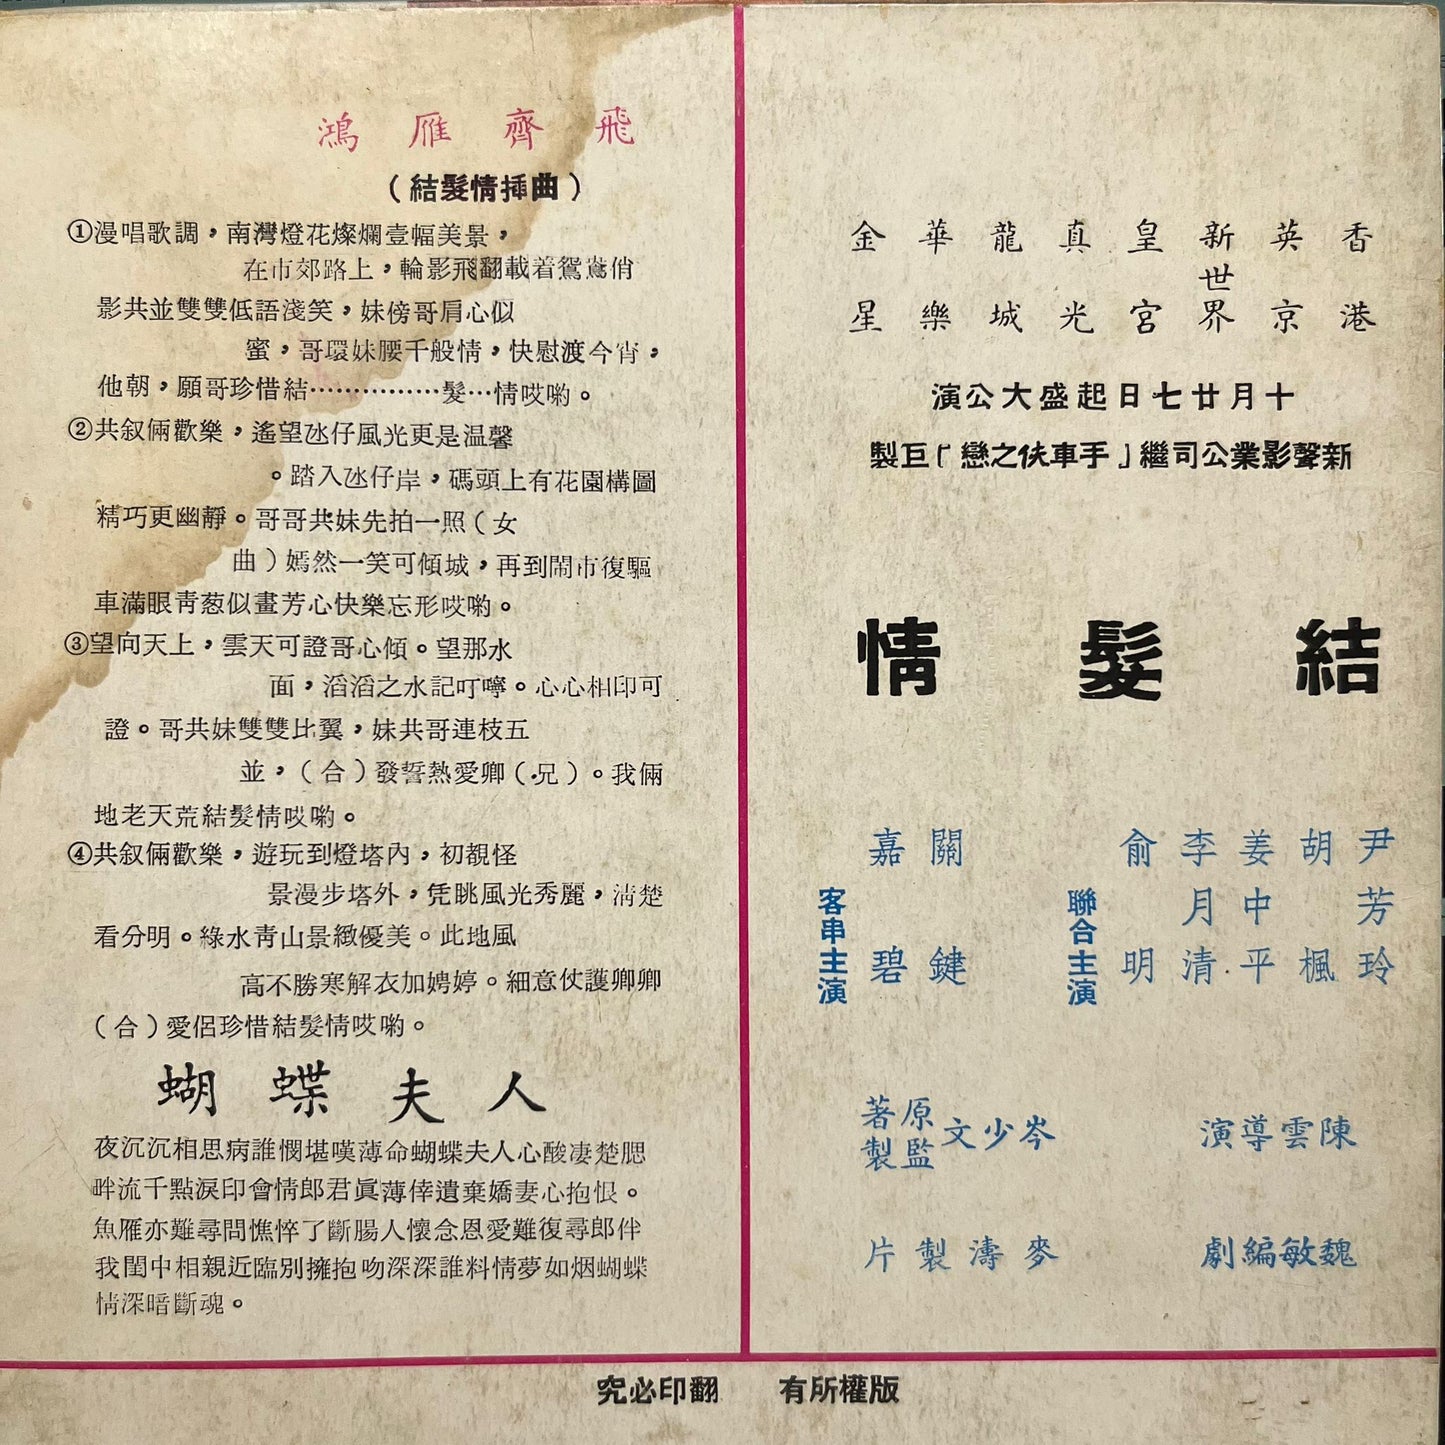 鴻雁齊飛
（結髮情揷曲）
①漫唱歌調，南灣燈花燦爛壹幅美景，
在市郊路上，輪影飛翻載着鴛鴦俏
影共並雙雙低語淺笑，妹傍哥肩心似
蜜，哥環妹腰千般情，快慰渡今宵，
他朝，願哥珍惜結……………髮…情哎喲。
②共叙倆歡樂，遙望氹仔風光更是温馨
。踏入氹仔岸，碼頭上有花園構圖
精巧更幽靜。哥哥共妹先拍一照（女
曲）嫣然一笑可傾城，再到鬧市復驅
車滿眼靑葱似畫芳心快樂忘形哎喲。
③望向天上，雲天可證哥心傾。望那水
面，滔滔之水記叮嚀。心心相印可
證。哥共妹雙雙比翼，妹共哥連枝五
並，（合）發誓熱愛卿（兄）。我倆
地老天荒結髮情哎喲。
④共叙倆歡樂，遊玩到燈塔內，初覩怪
景漫步塔外，凭眺風光秀麗，淸楚
看分明。綠水靑山景緻優美。此地風
高不勝寒解衣加娉婷。細意仗護卿卿
（合）愛侶珍惜結髮情哎喲。
蝴蝶夫人
夜沉沉相思病誰憫堪嘆薄命蝴蝶夫人心酸凄楚腮
畔流千點淚印會情郎君眞薄倖遺棄嬌妻心抱恨。
魚雁亦難尋問憔悴了斷腸人懷念恩愛難復尋郎伴
我閨中相親近臨別擁抱吻深深誰料情夢如烟蝴蝶
情深暗斷魂。
香港
英京
新世界
皇宮
真光
龍城
華樂
金星
十月廿七日起盛大公演
新聲影業公司繼「手車伕之戀」巨製
結髮情
尹芳玲
胡楓
姜中平
李月清
俞明
聯合主演
關鍵
嘉碧
客串主演
陳雲導演
岑少文原著監製
魏敏編劇
麥濤製片
版權所有　翻印必究